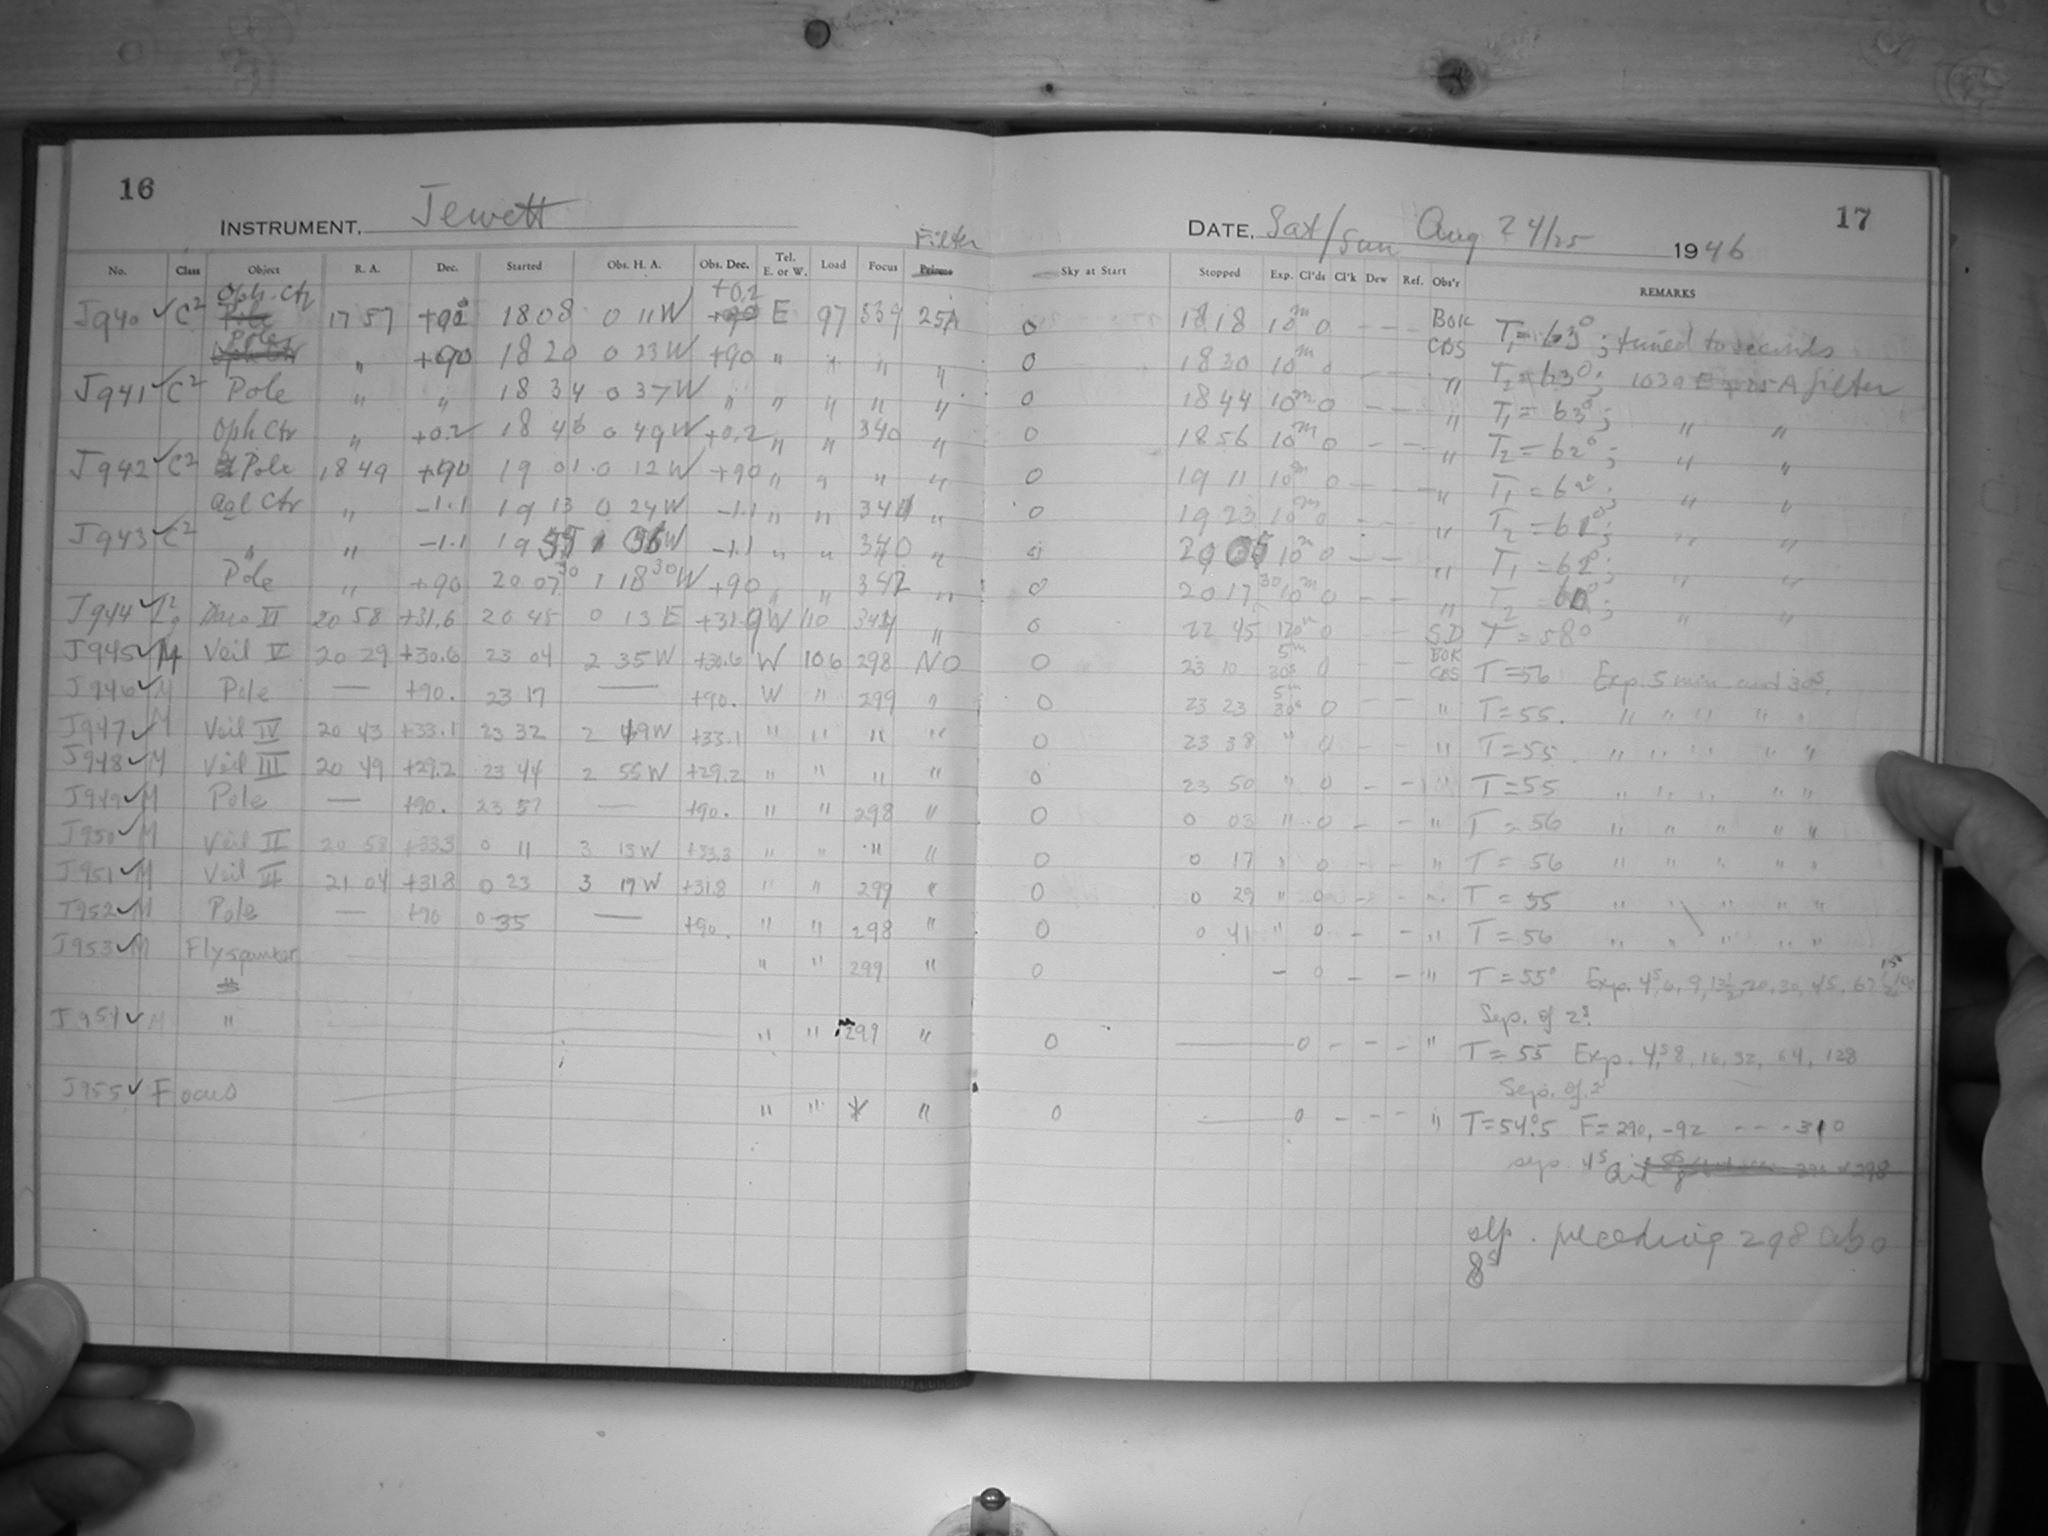 16
INSTRUMENT. Jewett
Filter
No. Class Object R. A. Dec. Started Obs. H. A. Obs. Dec. Tel. E. or W. Load Focus
J940 ✓ C2 Oph. Ctr 17 57 18 08 0 11 W +0.2 E 97 339 25A
Pole " +90 18 20 0 23 W +90 " " " "
J941 ✓ C2 Pole " " 18 34 0 37 W " " " " "
Oph Ctr " +0.2 18 46 0 49 W +0.2 " " 340 "
J942 ✓ C2 Pole 18 49 +90 19 01 0 12 W +90 " " " "
aql Ctr " -1.1 19 13 0 24 W -1.1 " " 341 "
J943 ✓ C2 " " -1.1 19 55 1 06 W -1.1 " " 340 "
Pole " +90 20 07 30 1 18 30 W +90 " " 342 "
J944 ✓ VI 20 58 +31.6 20 45 0 13 E W 110 "
J945 ✓ M Veil V 20 29 +30.6 23 04 2 35 W +30.6 W 106 298 NO
J946 ✓ M Pole — +90. 23 17 — +90. W " 299 "
J947 ✓ M Veil IV 20 43 +33.1 23 32 2 49 W +33.1 " " " "
J948 ✓ M Veil III 20 49 +29.2 23 44 2 55 W +29.2 " " " "
J949 ✓ M Pole — +90. 23 57 — +90. " " 298 "
J950 ✓ M Veil II 20 58 +33.3 0 11 3 13 W +33.3 " " " "
J951 ✓ M Veil 21 04 +31.8 0 23 3 19 W +31.8 " " 299 "
J952 ✓ M Pole — +90 0 35 — +90. " " 298 "
J953 ✓ M Flyspanker " " 299 "
J954 ✓ M " " " 299 "
J955 ✓ Focus " " * "
17
DATE. Sat/Sun Aug 24/25 1946
Sky at Start Stopped Exp. Cl'ds Cl'k Dew Ref. Obs'r REMARKS
0 18 18 10m 0 - - - BOK CBS T1 = 63°; tuned to seconds
0 18 30 10m 0 - - " T2 = 63°; 103a E + 25A filter
0 18 44 10m 0 - - " T1 = 63°; " "
0 18 56 10m 0 - - " T2 = 62°; " "
0 19 11 10m 0 - - " T1 = 62°; " "
0 19 23 10m 0 - - " T2 = 61°; " "
0 20 05 10m 0 - - " T1 = 62°; " "
0 20 17 30 10m 0 - - " T2 = 60°; " "
0 22 45 120m 0 - - SD T = 58°
0 23 10 5m 30s 0 - - BOK CBS T = 56 Exp. 5 min and 30s.
0 23 23 5m 30s 0 - - " T = 55. " " " " "
0 23 38 " 0 - - " T = 55. " " " " "
0 23 50 " 0 - - " T = 55 " " " " "
0 0 03 " 0 - - " T = 56 " " " " "
0 0 17 " 0 - - " T = 56 " " " " "
0 0 29 " 0 - - " T = 55 " " " " "
0 0 41 " 0 - - " T = 56 " " " " "
0 - 0 - - " T = 55° Exp. 4s, 6, 9, 13½, 20, 30, 45, 67
Sep. of 2s.
0 — 0 - - - " T = 55 Exp. 4s, 8, 16, 32, 64, 128
Sep. of 2s
0 — 0 - - - " T = 54°.5 F = 290, -92 - - - 310
sep. 4s
preceding 298 also
8s